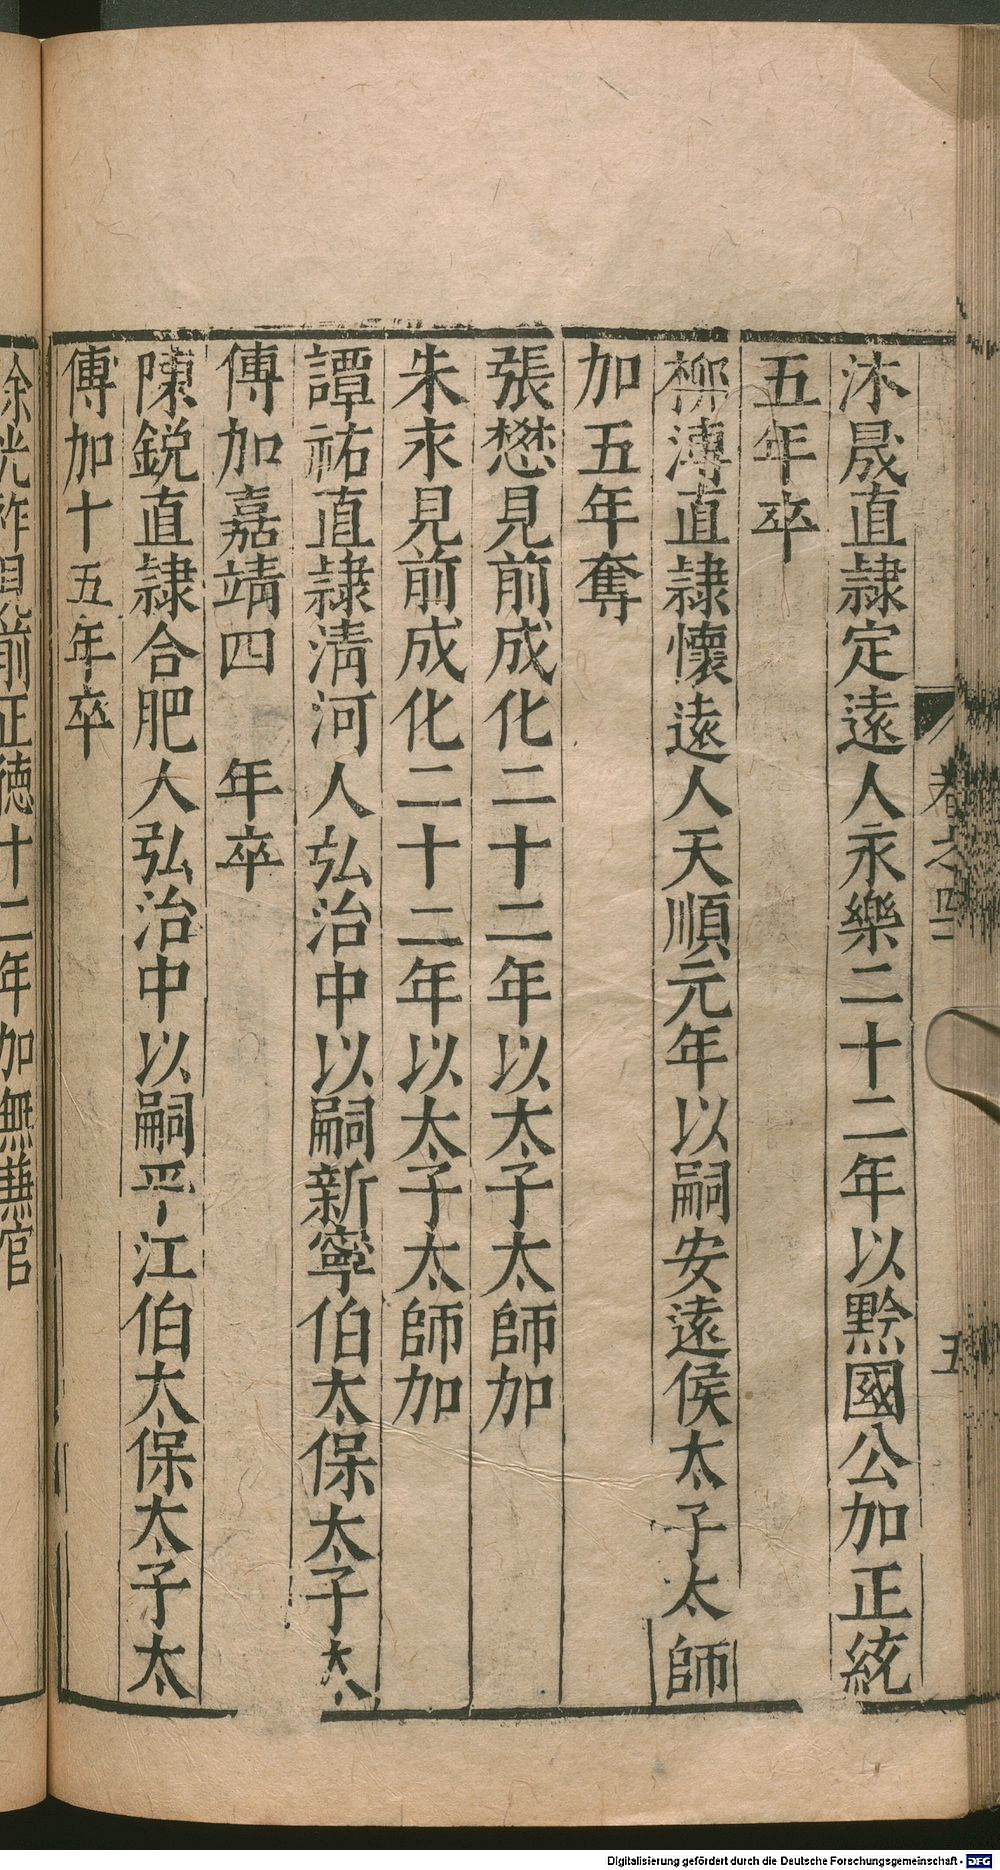 卷之四
五
沐晟直隸定遠人永樂二十二年以黔國公加正統
五年卒
柳溥直隸懷遠人天順元年以嗣安遠侯太子太師
加五年奪
張懋見前成化二十二年以太子太師加
朱永見前成化二十二年以太子太師加
譚祐直隸清河人弘治中以嗣新寧伯太保太子太
傅加嘉靖四 年卒
陳銳直隸合肥人弘治中以嗣平江伯太保太子太
傅加十五年卒
徐光祚見前正德十二年加無兼官
Digitalisierung gefördert durch die Deutsche Forschungsgemeinschaft - DFG